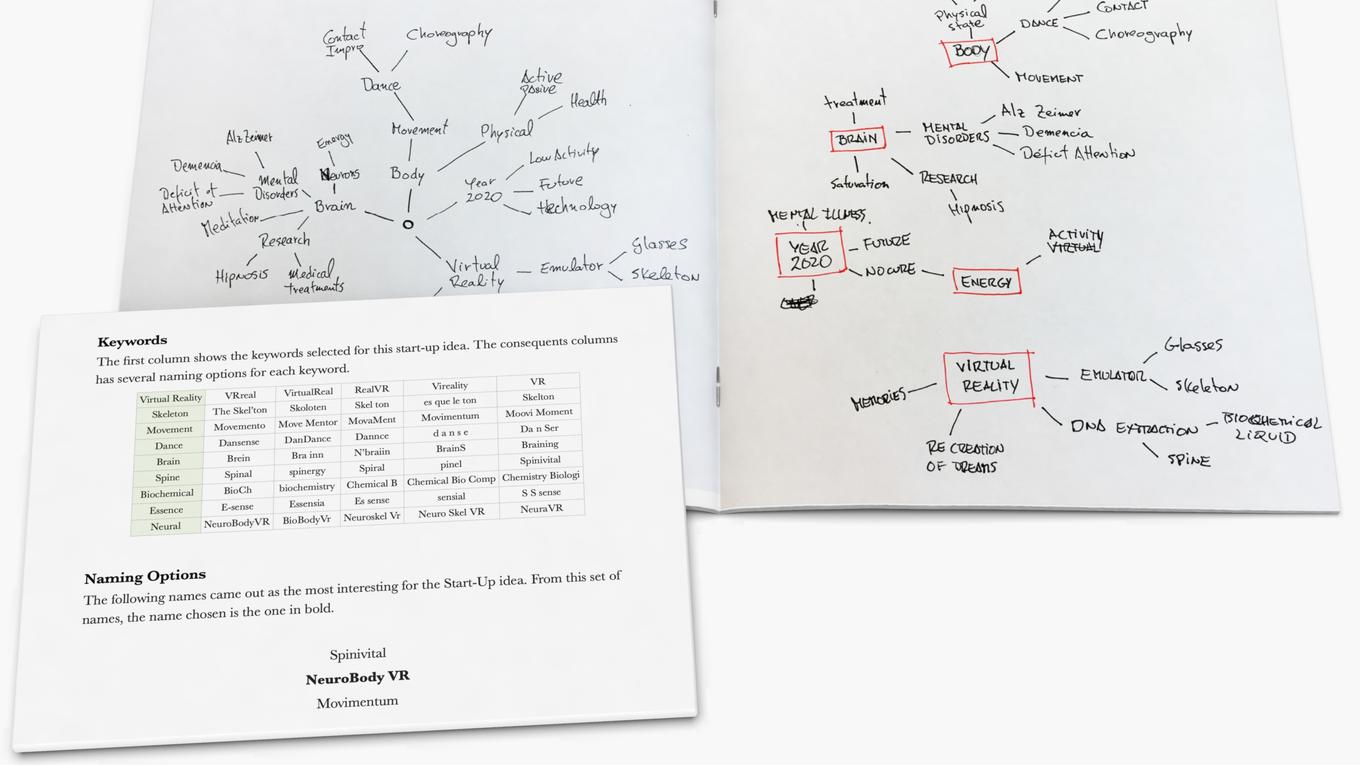 Contact
Impro
Choreography
Dance
Active
pasive
Health
Movement
Physical
AlzZeimer
Energy
Demencia
Mental
Disorders
Neurons
Deficit of
Attention
Meditation
Brain
Body
Low Activity
Year
2020
Future
technology
Research
Hipnosis
Medical
treatments
Virtual
Reality
Emulator
Glasses
Skeleton
Physical
state
DANCE
CONTACT
Choreography
BODY
MOVEMENT
treatment
BRAiN
MENTAL
DISORDERS
Alz Zeimer
Demencia
Déficit Attention
Saturation
RESEARCH
Hipnosis
MENTAL ILLNESS.
YEAR
2020
FUTURE
NO CURE
ENERGY
ACTIVITY
VIRTUAL
VIRTUAL
REALITY
EMULATOR
Glasses
Skeleton
MEMORIES
RE CREATION
OF DREAMS
DNA EXTRACTION
BIOCHEMICAL
LIQUID
SPINE
Keywords
The first column shows the keywords selected for this start-up idea. The consequents columns
has several naming options for each keyword.
Virtual Reality VRreal VirtualReal RealVR Vireality VR
Skeleton The Skel'ton Skoloten Skel ton es que le ton Skelton
Movement Movemento Move Mentor MovaMent Movimentum Moovi Moment
Dance Dansense DanDance Dannce d a n s e Da n Ser
Brain Brein Bra inn N'braiin BrainS Braining
Spine Spinal spinergy Spiral pinel Spinivital
Biochemical BioCh biochemistry Chemical B Chemical Bio Comp Chemistry Biologi
Essence E-sense Essensia Es sense sensial S S sense
Neural NeuroBodyVR BioBodyVr Neuroskel Vr Neuro Skel VR NeuraVR
Naming Options
The following names came out as the most interesting for the Start-Up idea. From this set of
names, the name chosen is the one in bold.
Spinivital
NeuroBody VR
Movimentum